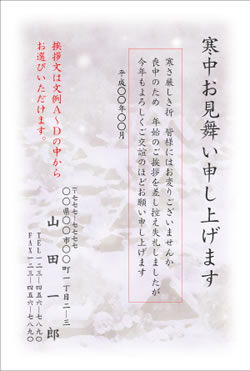 寒中お見舞い申し上げます
寒さ厳しき折 皆様にはお変りございませんか
喪中のため 年始のご挨拶を差し控え失礼しましたが
今年もよろしくご交誼のほどお願い申し上げます
平成〇〇年〇〇月
挨拶文は文例A〜Dの中から
お選びいただけます。
〒七七七-七七七七
〇〇県〇〇市〇〇町一丁目二-三
山田一郎
TEL一二三-四五六-七八九〇
FAX一二三-四五六-七八九〇